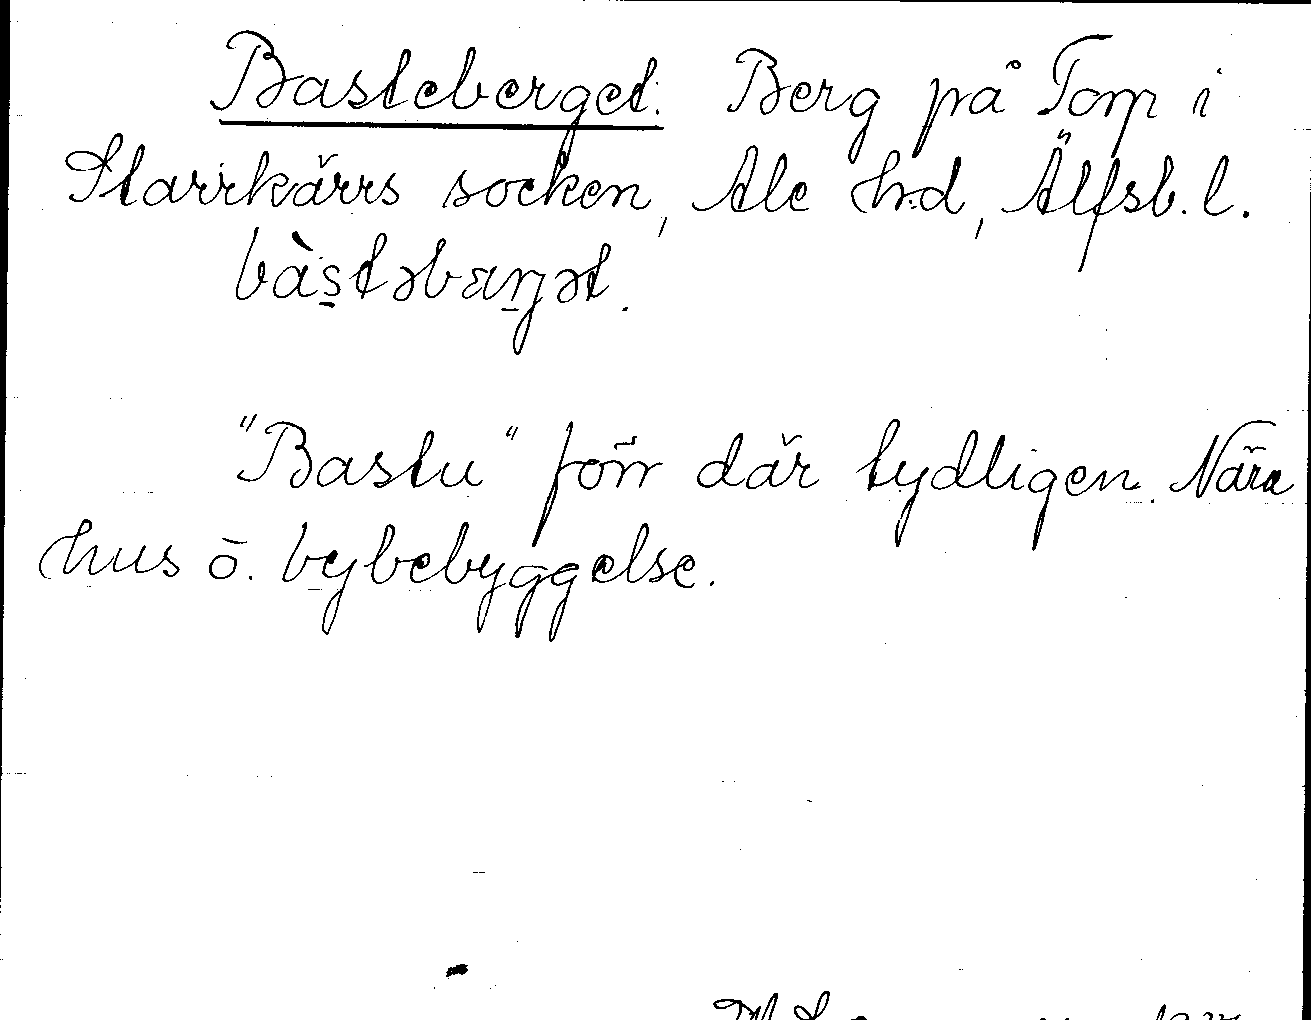 Basteberget. Berg på Torp i
Starrkärrs socken, Ale hd, Älfsb. l.
bàstəbæŋət.
"Bastu" förr där tydligen. Nära
hus o. bybebyggelse.